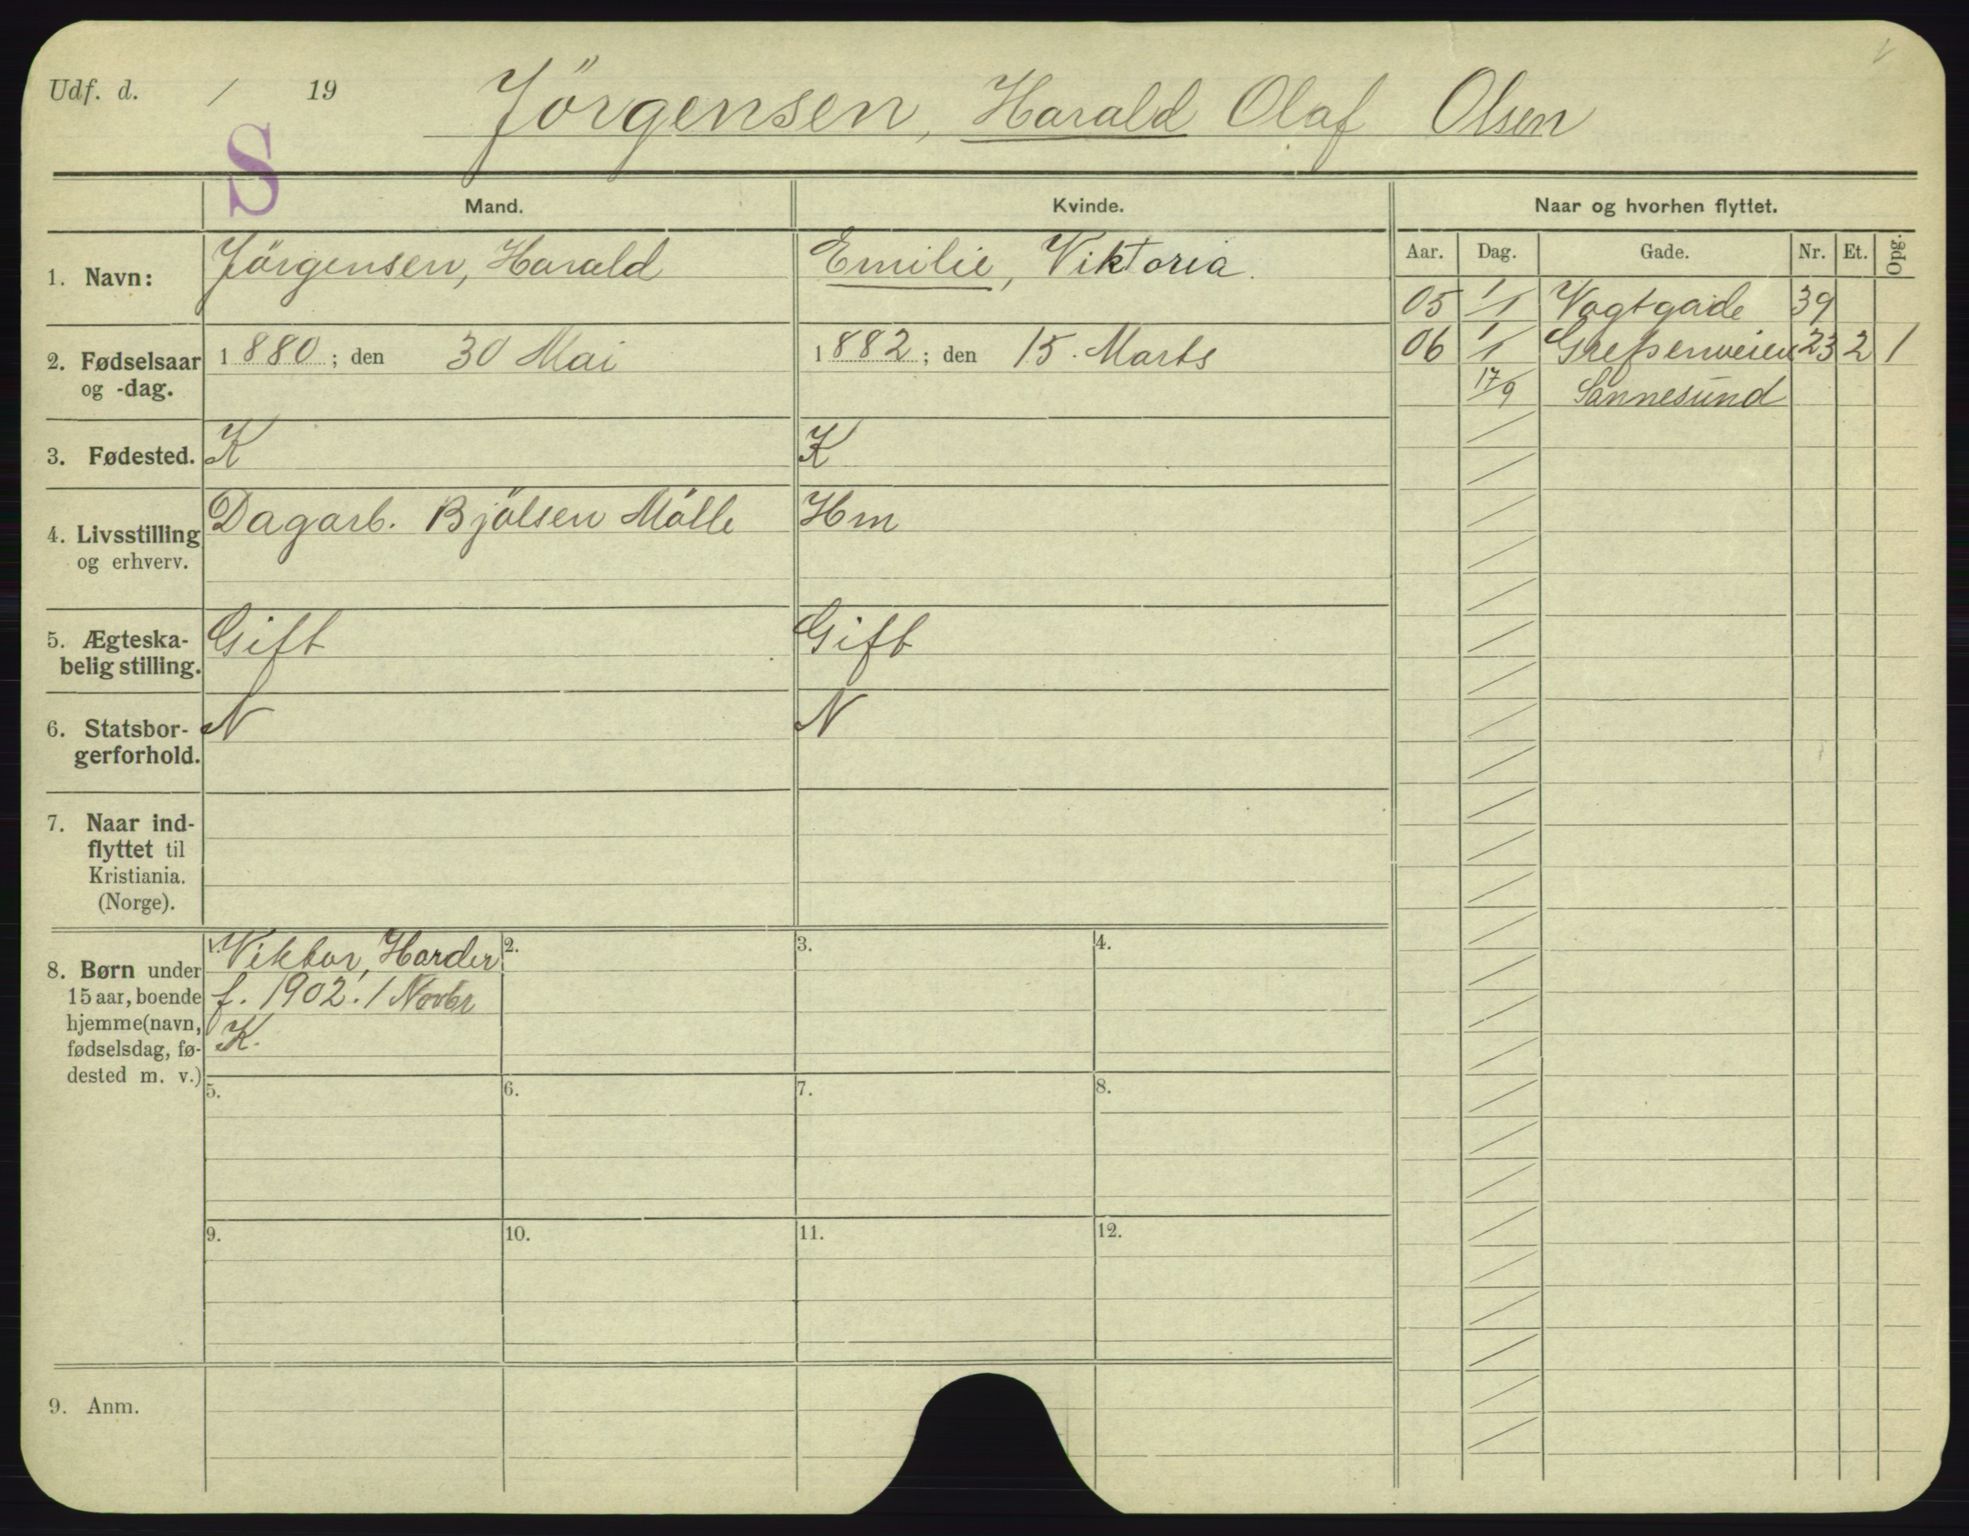 Udf. d. / 19 Jörgensen, Harald Olaf Olsen
S
Mand. Kvinde. Naar og hvorhen flyttet.
Aar. Dag. Gade. Nr. Et. Opg.
1. Navn: Jörgensen, Harald Emilie, Viktoria.
05 1/1 Vogtgade 39
2. Fødselsaar 1880; den 30 Mai 1882; den 15. Marts
og -dag.
06 1/1 Grefsenveien 23 2 1
17/9 Sannesund
3. Fødested. K K
4. Livsstilling Dagarb. Bjölsen Mölle Hm
og erhverv.
5. Ægteska- Gift Gift
belig stilling.
6. Statsbor- N N
gerforhold.
7. Naar ind-
flyttet til
Kristiania.
(Norge).
8. Børn under
15 aar, boende
hjemme (navn,
fødselsdag, fø-
dested m. v.)
1. Viktor, Harder 2. 3. 4.
f. 1902. 1 Novbr
K.
5. 6. 7. 8.
9. 10. 11. 12.
9. Anm.